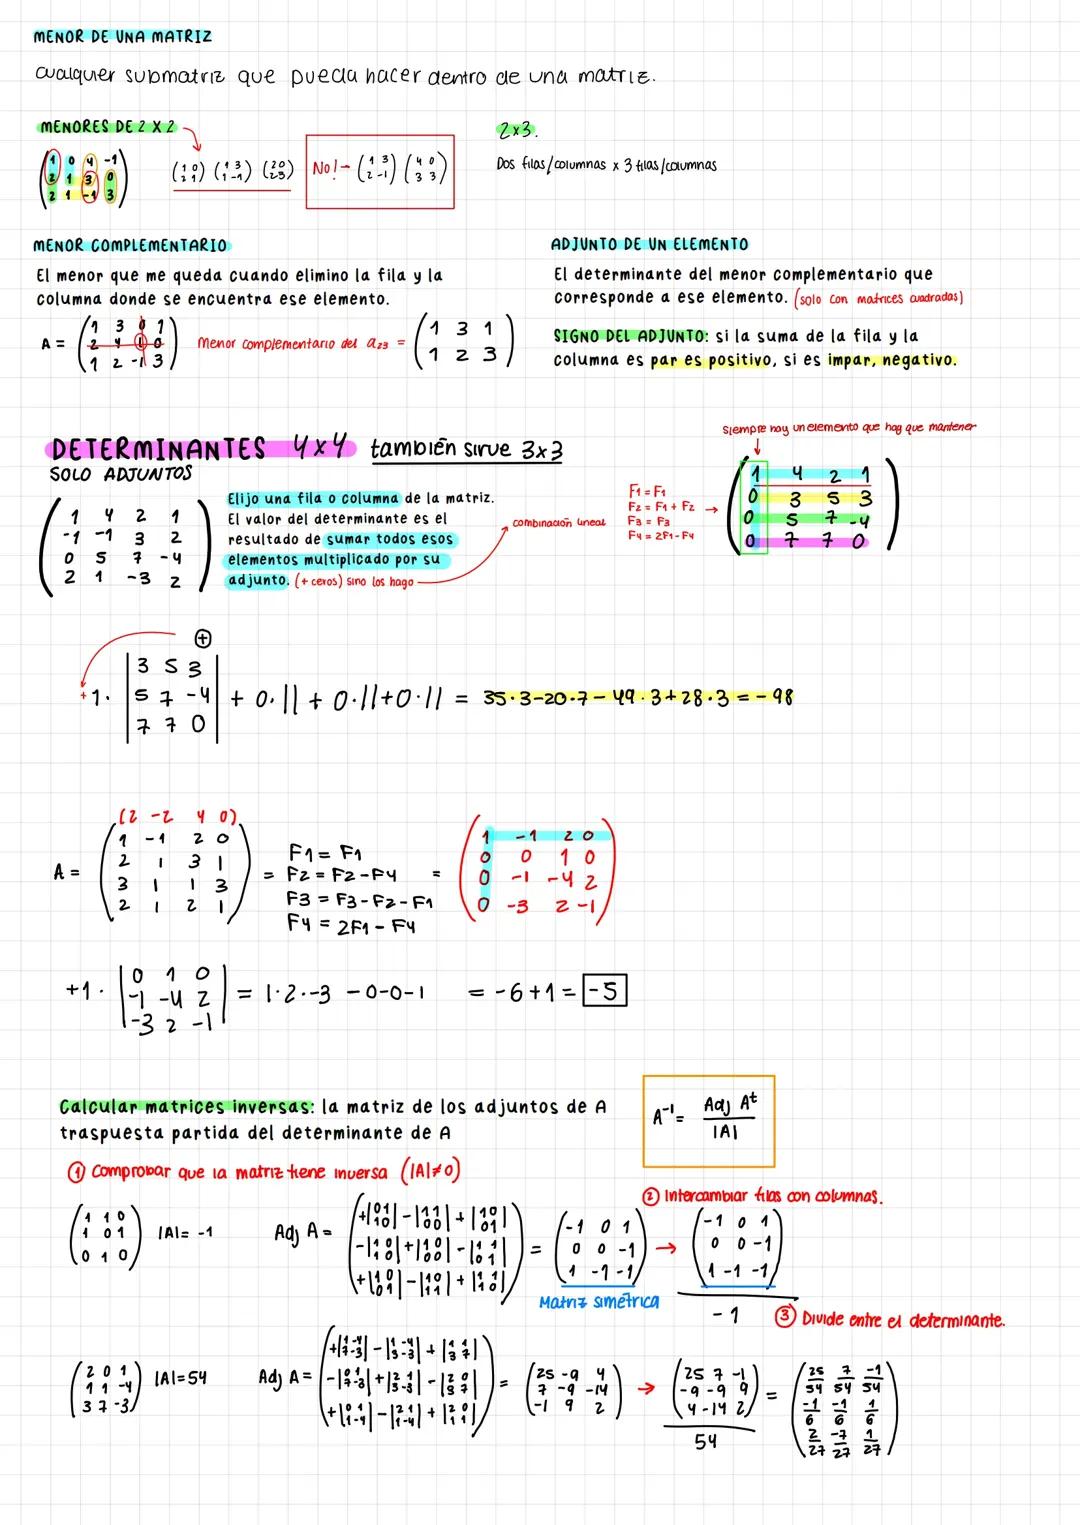 MENOR DE UNA MATRIZ
cualquier submatriz que pueda hacer dentro de una matriz.
MENORES DE 2 X 2
2x3.
Dos filas/columnas x 3 filas/columnas
1 0 4 -1
2 1 3 0
2 1 -1 3
(1 0) (1 3) (2 0) No!- (1 3) (4 0)
(2 1) (1 -1) (2 3) (2 -1) (3 3)
MENOR COMPLEMENTARIO
El menor que me queda cuando elimino la fila y la
columna donde se encuentra ese elemento.
A = (1 3 0 1)
(2 4 1 0)
(1 2 -1 3)
Menor complementario del a23 = (1 3 1)
(1 2 3)
ADJUNTO DE UN ELEMENTO
El determinante del menor complementario que
corresponde a ese elemento. (solo con matrices cuadradas)
SIGNO DEL ADJUNTO: si la suma de la fila y la
columna es par es positivo, si es impar, negativo.
DETERMINANTES 4x4 también sirve 3x3
SOLO ADJUNTOS
1 4 2 1
-1 -1 3 2
0 5 7 -4
2 1 -3 2
Elijo una fila o columna de la matriz.
El valor del determinante es el
resultado de sumar todos esos
elementos multiplicado por su
adjunto. (+ ceros) sino los hago
combinación lineal
F1 = F1
F2 = F1 + F2 →
F3 = F3
F4 = 2F1 - F4
Siempre hay un elemento que hay que mantener
1 4 2 1
0 3 5 3
0 5 7 -4
0 7 7 0
+
3 5 3
+1· 5 7 -4 + 0·|| + 0·|| + 0·|| = 35·3-20·7-49·3+28·3 = -98
7 7 0
(2 -2 4 0)
A =
1 -1 2 0
2 1 3 1
3 1 1 3
2 1 2 1
=
F1 = F1
F2 = F2 - F4
F3 = F3 - F2 - F1
F4 = 2F1 - F4
=
1 -1 2 0
0 0 1 0
0 -1 -4 2
0 -3 2 -1
0 1 0
+1· -1 -4 2 = 1·2·-3 -0-0-1 = -6+1 = -5
-3 2 -1
Calcular matrices inversas: la matriz de los adjuntos de A
traspuesta partida del determinante de A
A⁻¹ = Adj Aᵗ
|A|
① Comprobar que la matriz tiene inversa (|A|≠0)
② Intercambiar filas con columnas.
1 1 0
1 0 1
0 1 0
|A| = -1
Adj A =
+|0 1; 1 0| -|1 1; 0 0| +|1 0; 0 1|
-|1 0; 1 0| +|1 0; 0 0| -|1 1; 0 1|
+|1 0; 0 1| -|1 0; 1 1| +|1 1; 1 0|
=
-1 0 1
0 0 -1
1 -1 -1
Matriz simétrica
→
-1 0 1
0 0 -1
1 -1 -1
-1
③ Divide entre el determinante.
2 0 1
1 1 -4
3 7 -3
|A| = 54
Adj A =
+|1 -4; 7 -3| -|1 -4; 3 -3| +|1 1; 3 7|
-|0 1; 7 -3| +|2 1; 3 -3| -|2 0; 3 7|
+|0 1; 1 -4| -|2 1; 1 -4| +|2 0; 1 1|
=
25 -9 4
7 -9 -14
-1 9 2
→
25 7 -1
-9 -9 9
4 -14 2
54
=
25/54 7/54 -1/54
-1/6 -1/6 1/6
2/27 -7/27 1/27